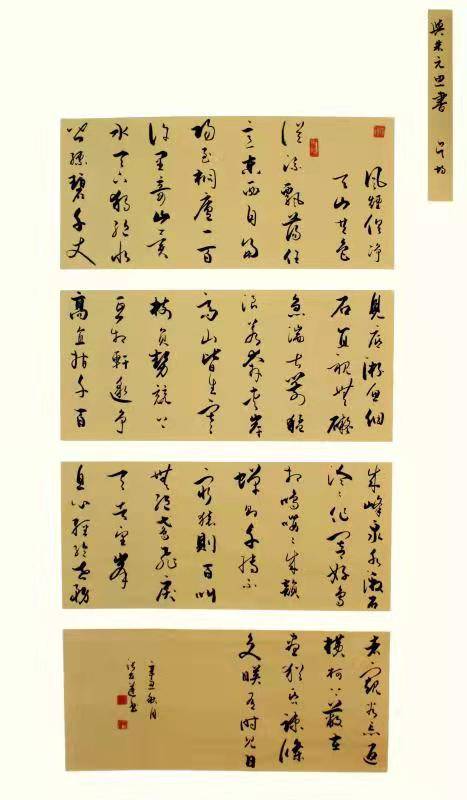 與朱元思書 吴均
風煙俱淨
天山共色
從流飄蕩任
意東西自富
陽至桐廬一百
許里奇山異
水天下獨絕水
皆縹碧千丈
見底游魚細
石直視無礙
急湍甚箭猛
浪若奔夾岸
高山皆生寒
樹負勢競上
互相軒邈爭
高直指千百
成峰泉水激石
泠泠作響好鳥
相鳴嚶嚶成韻
蟬則千轉不
窮猿則百叫
無絕鳶飛戾
天者望峰
息心經綸世務
者窺谷忘返
橫柯上蔽在
晝猶昏疏條
交映有時見日
辛丑秋月